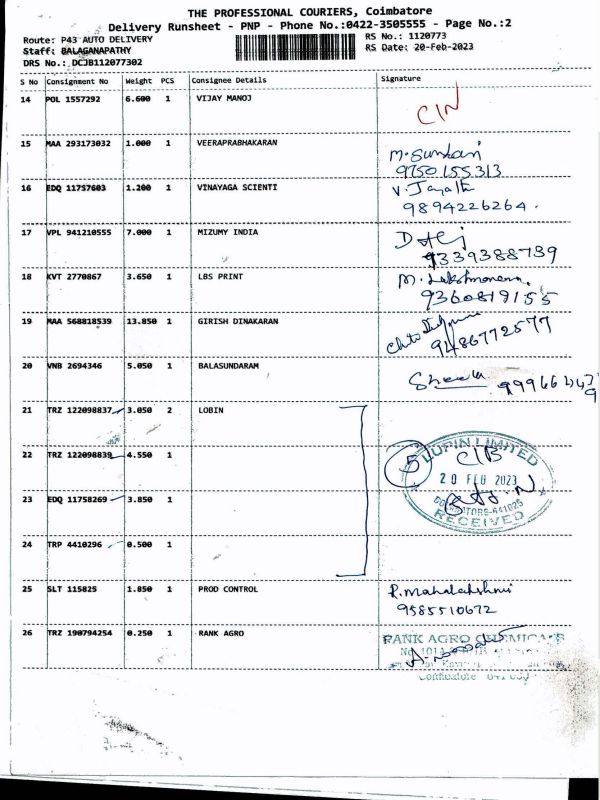 THE PROFESSIONAL COURIERS, Coimbatore
Delivery Runsheet - PNP - Phone No.:0422-3505555 - Page No.:2
Route: P43 AUTO DELIVERY
RS No.: 1120773
Staff: BALAGANAPATHY
RS Date: 20-Feb-2023
DRS No.: DCJB112077302
S No Consignment No Weight PCS Consignee Details Signature
14 POL 1557292 6.600 1 VIJAY MANOJ
15 MAA 293173032 1.000 1 VEERAPRABHAKARAN
9750155313
16 EDQ 11757603 1.200 1 VINAYAGA SCIENTI
9894226264.
17 VPL 941210555 7.000 1 MIZUMY INDIA
9339388739
18 KVT 2770867 3.650 1 LBS PRINT
9360819155
19 MAA 568818539 13.850 1 GIRISH DINAKARAN
9486772577
20 VNB 2694346 5.050 1 BALASUNDARAM
21 TRZ 122098837 3.050 2 LOBIN
22 TRZ 122098839 4.550 1
5
LUPIN LIMITED
CIB
20 FEB 2023
23 EDQ 11758269 3.850 1
RECEIVED
24 TRP 4410296 0.500 1
25 SLT 115825 1.850 1 PROD CONTROL P. Mahalakshmi
9585510672
26 TRZ 190794254 0.250 1 RANK AGRO
RANK AGRO CHEMICALS